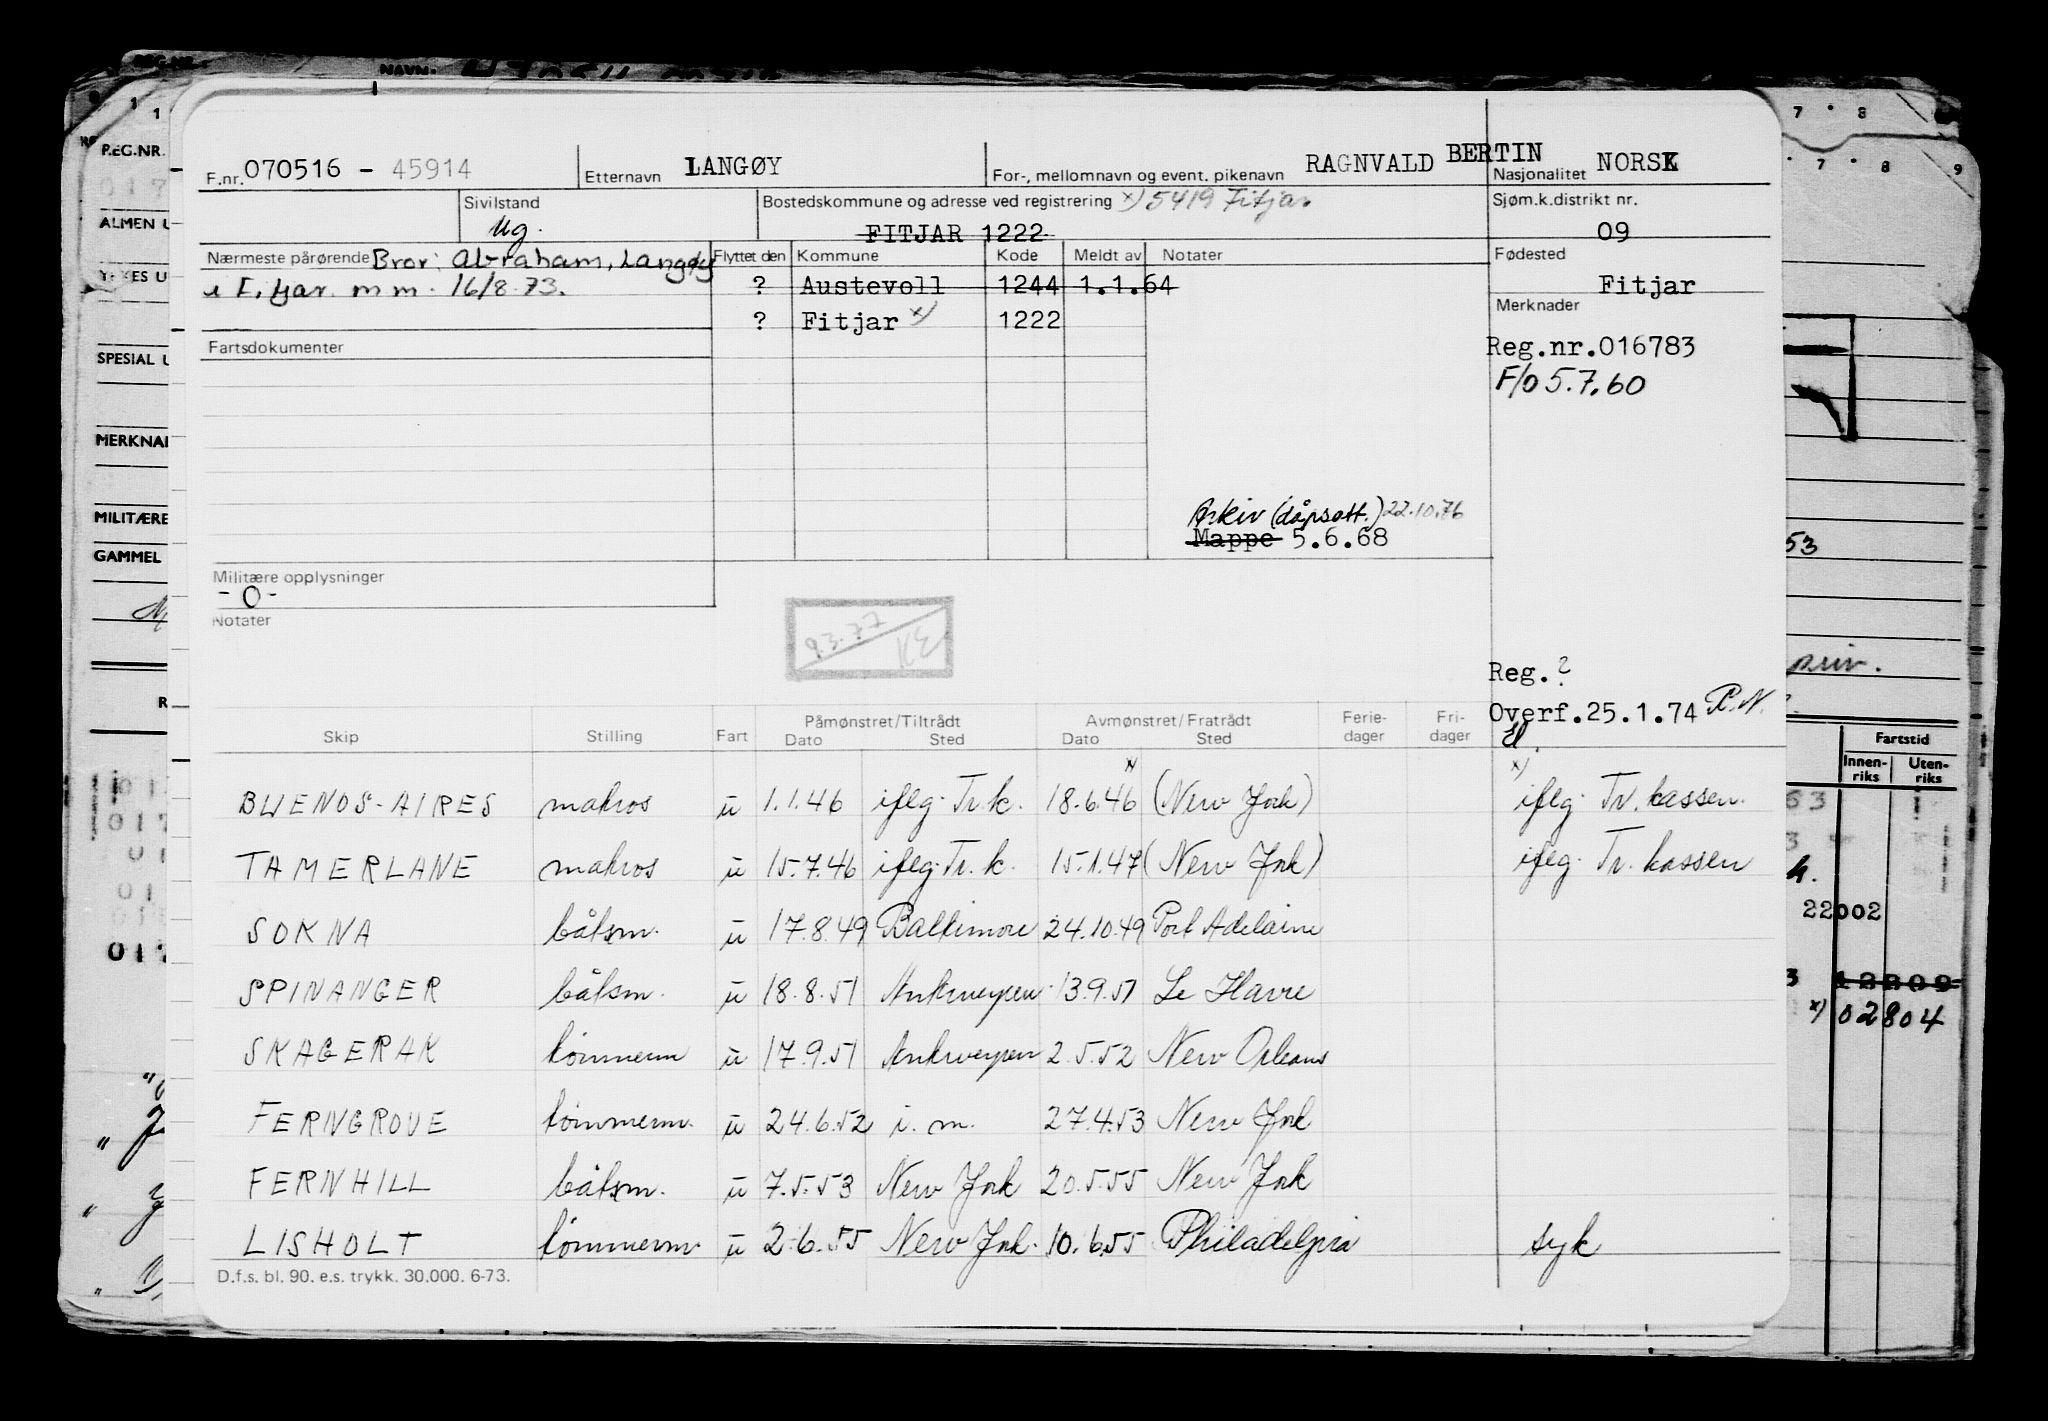 F.nr. 070516 - 45914 Etternavn LANGØY For-, mellomnavn og event. pikenavn RAGNVALD BERTIN Nasjonalitet NORSK
Sivilstand Ug. Bostedskommune og adresse ved registrering x) 5419 Fitjar Sjøm.k.distrikt nr.
FITJAR 1222 09
Nærmeste pårørende Bror: Abraham, Langøy Flyttet den Kommune Kode Meldt av Notater Fødested
i Fitjar. m m. 16/8-73. ? Austevoll 1244 1.1.64 Fitjar
Merknader
? Fitjar x) 1222
Fartsdokumenter Reg.nr.016783
F/o 5.7.60
Arkiv (dåpsatt.) 22.10.76
Mappe 5.6.68
Militære opplysninger
- 0 -
Notater
9.3.77 KE
Reg.?
Overf.25.1.74 P.N.
Skip Stilling Fart Påmønstret/Tiltrådt Avmønstret/Fratrådt Ferie- Fri-
Dato Sted Dato Sted dager dager
BUENOS-AIRES matros u 1.1.46 iflg. Tr.k. 18.6.46 x (New York) x) iflg. Tr. kassen.
TAMERLANE matros u 15.7.46 iflg. Tr.k. 15.1.47 (New York) iflg. Tr. kassen
SOKNA båtsm. u 17.8.49 Baltimore 24.10.49 Port Adelaine
SPINANGER båtsm. u 18.8.51 Antwerpen 13.9.51 Le Havre
SKAGERAK tømmerm u 17.9.51 Antwerpen 2.5.52 New Orleans
FERNGROVE tømmerm. u 24.6.52 i. m. 27.4.53 New York
FERNHILL båtsm. u 7.5.53 New York 20.5.55 New York
LISHOLT tømmerm. u 2.6.55 New York. 10.6.55 Philadelpia syk
D.f.s. bl. 90. e.s. trykk. 30.000. 6-73.
REG.NR.
NAVN:
ALMEN U
SPESIAL U
MERKNAD
MILITÆRE
GAMMEL
7 8
7 8 9
53
priv.
Fartstid
Innen- Uten-
riks riks
22002
02804